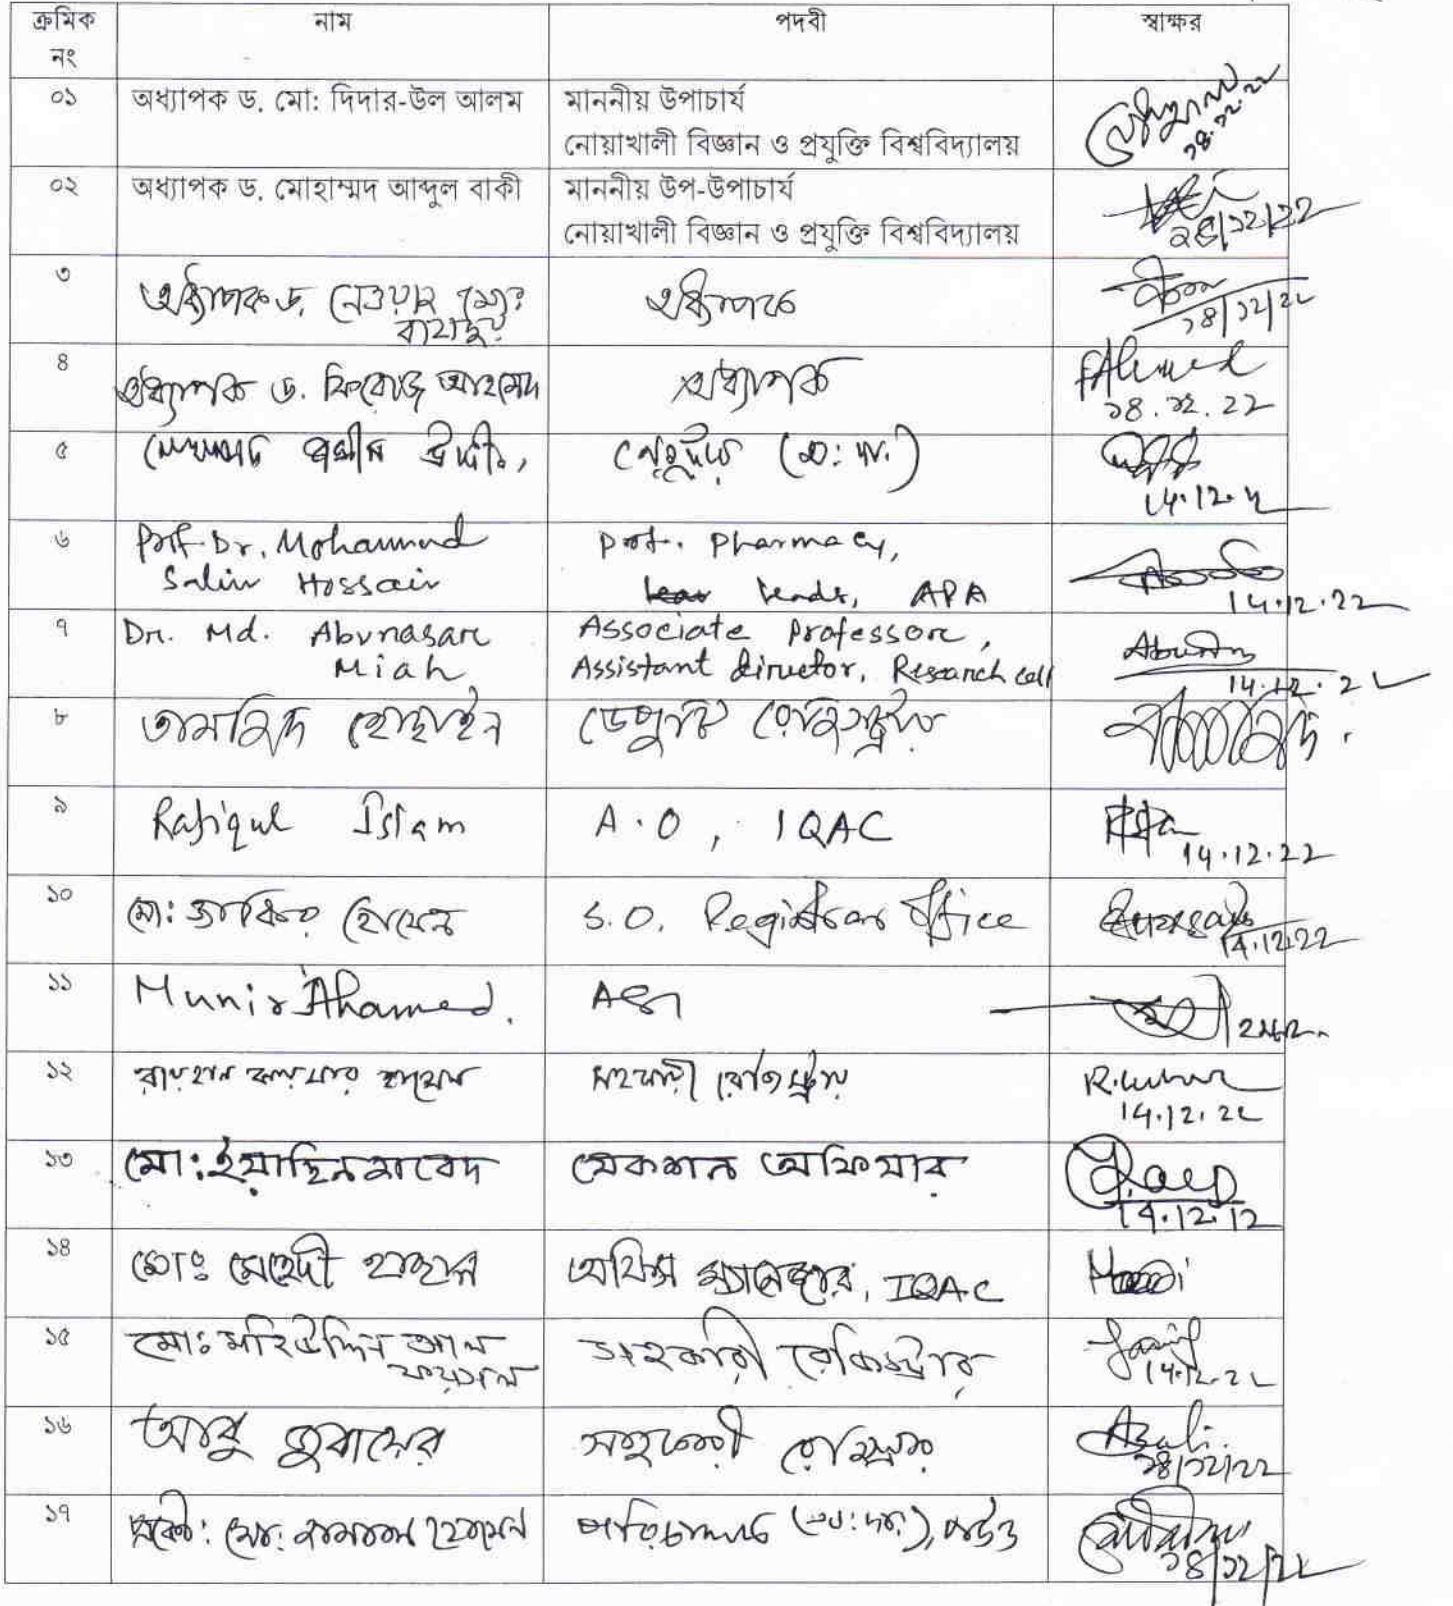 ক্রমিক নাম পদবী স্বাক্ষর
নং
০১ অধ্যাপক ড. মো: দিদার-উল আলম মাননীয় উপাচার্য
নোয়াখালী বিজ্ঞান ও প্রযুক্তি বিশ্ববিদ্যালয় ১৪.১২.২২
০২ অধ্যাপক ড. মোহাম্মদ আব্দুল বাকী মাননীয় উপ-উপাচার্য
নোয়াখালী বিজ্ঞান ও প্রযুক্তি বিশ্ববিদ্যালয় ১৪/১২/২২
৩ অধ্যাপক ড. নেওয়াজ মোঃ অধ্যাপক
বাহাদুর ১৪/১২/২২
৪ অধ্যাপক ড. ফিরোজ আহমেদ অধ্যাপক FAhmed
১৪.১২.২২
৫ মোহাম্মদ জসীম উদ্দীন, রেজিস্ট্রার (অ: দা:)
14.12.2
৬ Prof. Dr. Mohammad Prof. Pharmacy,
Salim Hossain APA 14.12.22
৭ Dr. Md. Abunasar Associate Professor,
Miah Assistant director, Research cell
14.12.2২
৮ তামজিদ হোছাইন ডেপুটি রেজিস্ট্রার
৯ Rafiqul Islam A.O, IQAC
14.12.22
১০ মো: জাকির হোসেন S.O. Registrar Office
14.12.22
১১ Munir Ahamed.
১২ রায়হান কায়সার হাসেম সহকারী রেজিস্ট্রার
14.12.22
১৩ মো: ইয়াছিন আবেদ সেকশন অফিসার
14.12.12
১৪ মোঃ মেহেদী হাছান অফিস ম্যানেজার, IQAC
১৫ মোঃ মহিউদ্দিন আল সহকারী রেজিস্ট্রার
ফয়সাল 14.12.22
১৬ আবু জুবায়ের সহকারী রেজিস্ট্রার
১৪/১২/২২
১৭ প্রকৌ: মো: জামাল হোসেন পরিচালক (ভা: দা:), পউও
১৪/১২/২২